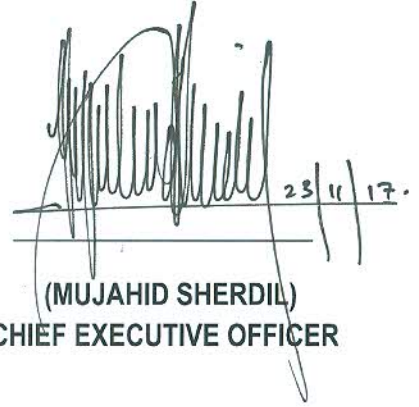 23/11/17.
(MUJAHID SHERDIL)
CHIEF EXECUTIVE OFFICER